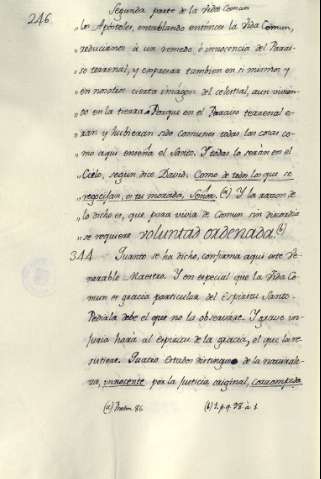 246
Segunda parte de la Vida Comun
los Apóstoles, entablando entónces la Vida Comun,
reducianos á un remedo, ó innocencia del Parai-
so terrenal, y empezar tambien en si mismos y
en nosotros cierta imagen del celestial, aun vivien-
do en la tierra. Porque en el Paraiso terrenal e-
ran y hubieran sido comunes todas las cosas co-
mo aqui enseña el Santo. Y todas lo serán en el
Cielo, segun dice David. Como de todos los que se
regocijan, es tu morada, Señora. (a) Y la razon de
lo dicho es, que para vivir de Comun sin discordia
se requiere voluntad ordenada. (b)
344 Quanto se ha dicho, confirma aqui este Ve-
nerable Maestro. Y en especial que la Vida Co-
mun es gracia particular del Espiritu Santo.
Pedirla debe el que no la observare. Y grave in-
juria hará al espiritu de la gracia, el que la re-
sistiere. Quatro Estados distingue de la naturale-
za, innocente por la Justicia original, corrompida
(a) Psalm. 86 (b) 1. p. q. 98 a. 1